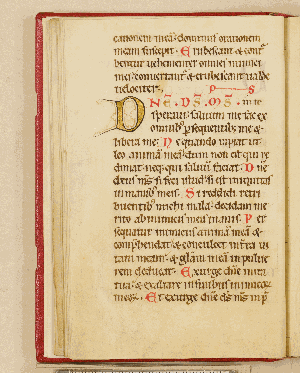 cationem meā· dominus orationem
meam suscepit· Erubescant & contur
bentur uehementer omnes inimici
mei· conuertant᷑ & erubescant ualde
uelociter· P S
DNE · DS̄ · MS̄ · in te
speraui· saluum me fac ex
omnib; p̱sequentib; me &
libera me· Ne quando rapiat ut
leo animā meā· dum non est qui re
dimat· neq; qui saluū faciat· Dn̄e
deus ms̄ si feci istud· si est iniquitas
in manib; meis· Si reddidi retri
buentib; michi mala· decidam me
rito ab inimicis meis inanis· Per
sequatur inimicus animā meā &
comp̱hendat· & conculcet in t̄ra ui
tam meam· & gl̄am meā in pulue
rem deducat· Exurge dn̄e in ira
tua· & exaltare in finibus inimicoꝝ
meoꝝ· Et exurge dn̄e ds̄ ms̄ in p̄